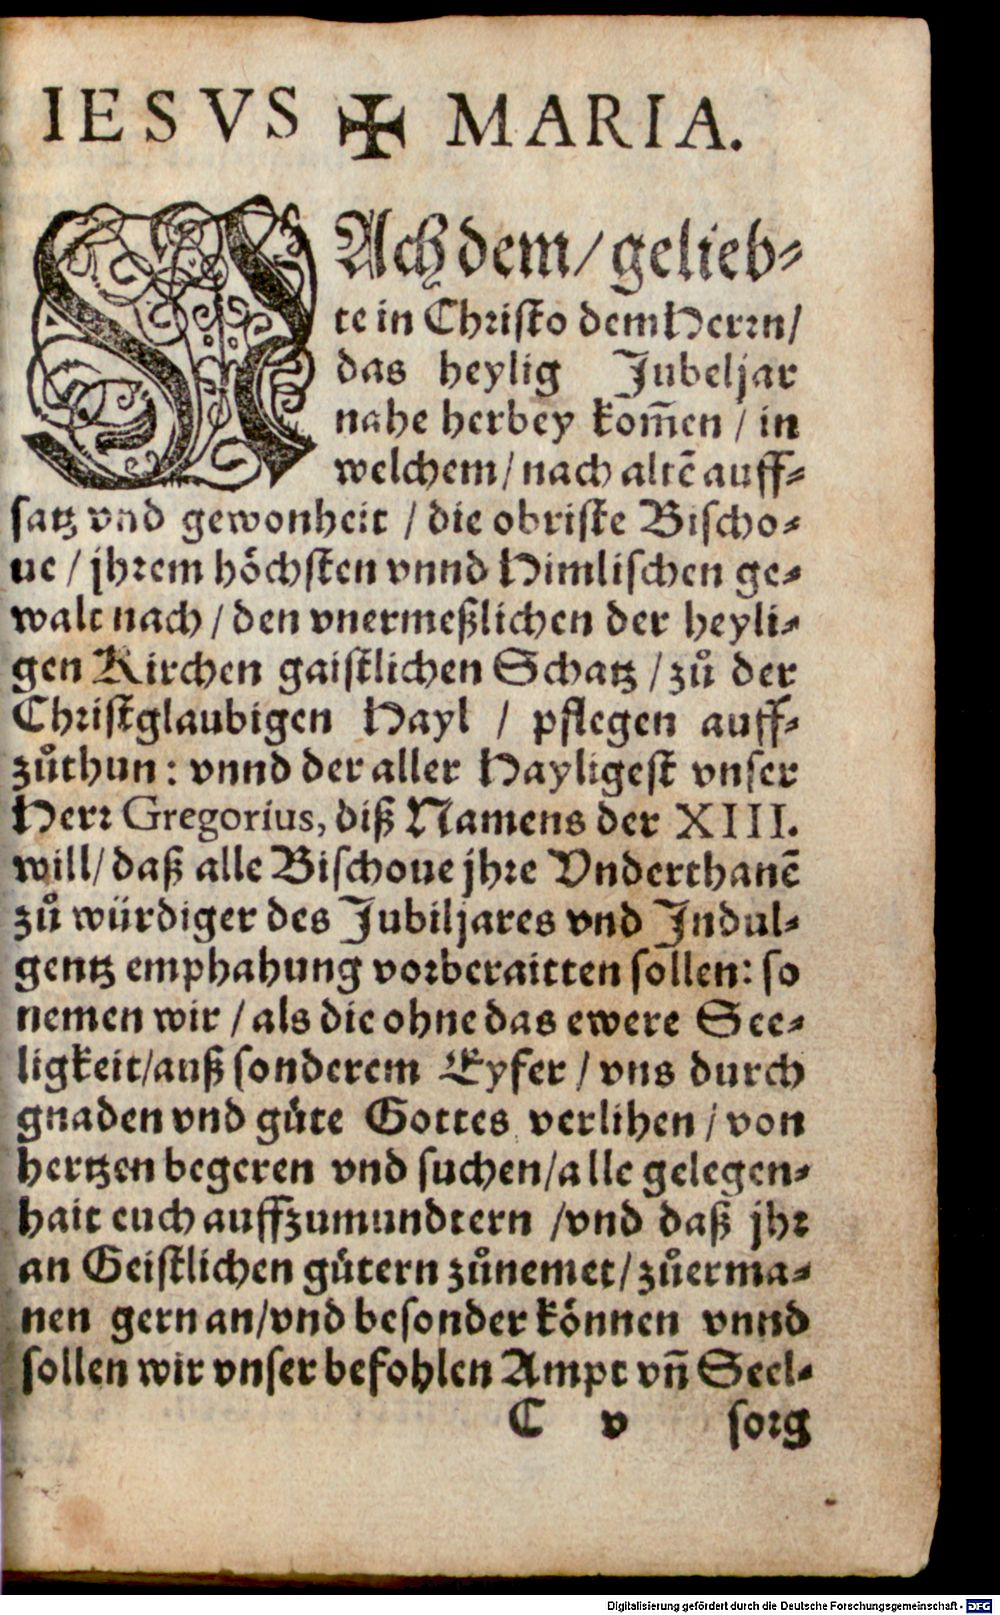 IESVS ✠ MARIA.
NAch dem / gelieb⸗
te in Christo dem Herrn /
das heylig Jubeljar
nahe herbey kom̃en / in
welchem / nach altẽ auff⸗
satz vnd gewonheit / die obriste Bischo⸗
ue / jhrem höchsten vnnd Himlischen ge⸗
walt nach / den vnermeßlichen der heyli⸗
gen Kirchen gaistlichen Schatz / zů der
Christglaubigen Hayl / pflegen auff⸗
zůthun: vnnd der aller Hayligest vnser
Herr Gregorius, diß Namens der XIII.
will / daß alle Bischoue jhre Vnderthanẽ
zů würdiger des Jubiljares vnd Indul⸗
gentz emphahung vorberaitten sollen: so
nemen wir / als die ohne das ewere See⸗
ligkeit / auß sonderem Eyfer / vns durch
gnaden vnd güte Gottes verlihen / von
hertzen begeren vnd suchen / alle gelegen⸗
hait euch auffzumundtern / vnd daß jhr
an Geistlichen gütern zůnemet / zůerma⸗
nen gern an / vnd besonder können vnnd
sollen wir vnser befohlen Ampt vñ Seel⸗
C v sorg
Digitalisierung gefördert durch die Deutsche Forschungsgemeinschaft - DFG